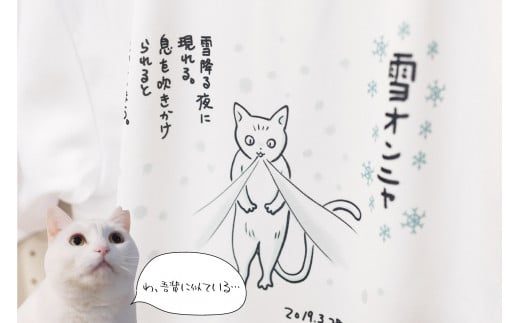 雪オンニャ
雪降る夜に
現れる。
息を吹きかけ
られると
2019.3.
わ、吾輩に似ている…